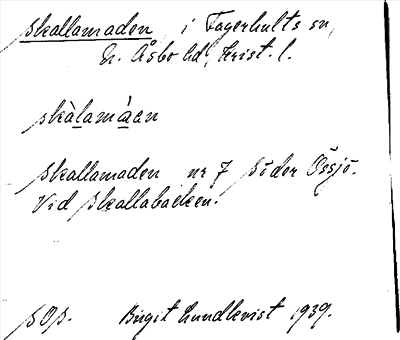 skallamaden i Fagerhults sn,
N. Åsbo hd, Krist. l.
skàlamáen
Skallamaden nr 7 Söder Össjö.
Vid Skallabacken.
sOp. Birgit Lundkvist 1939.